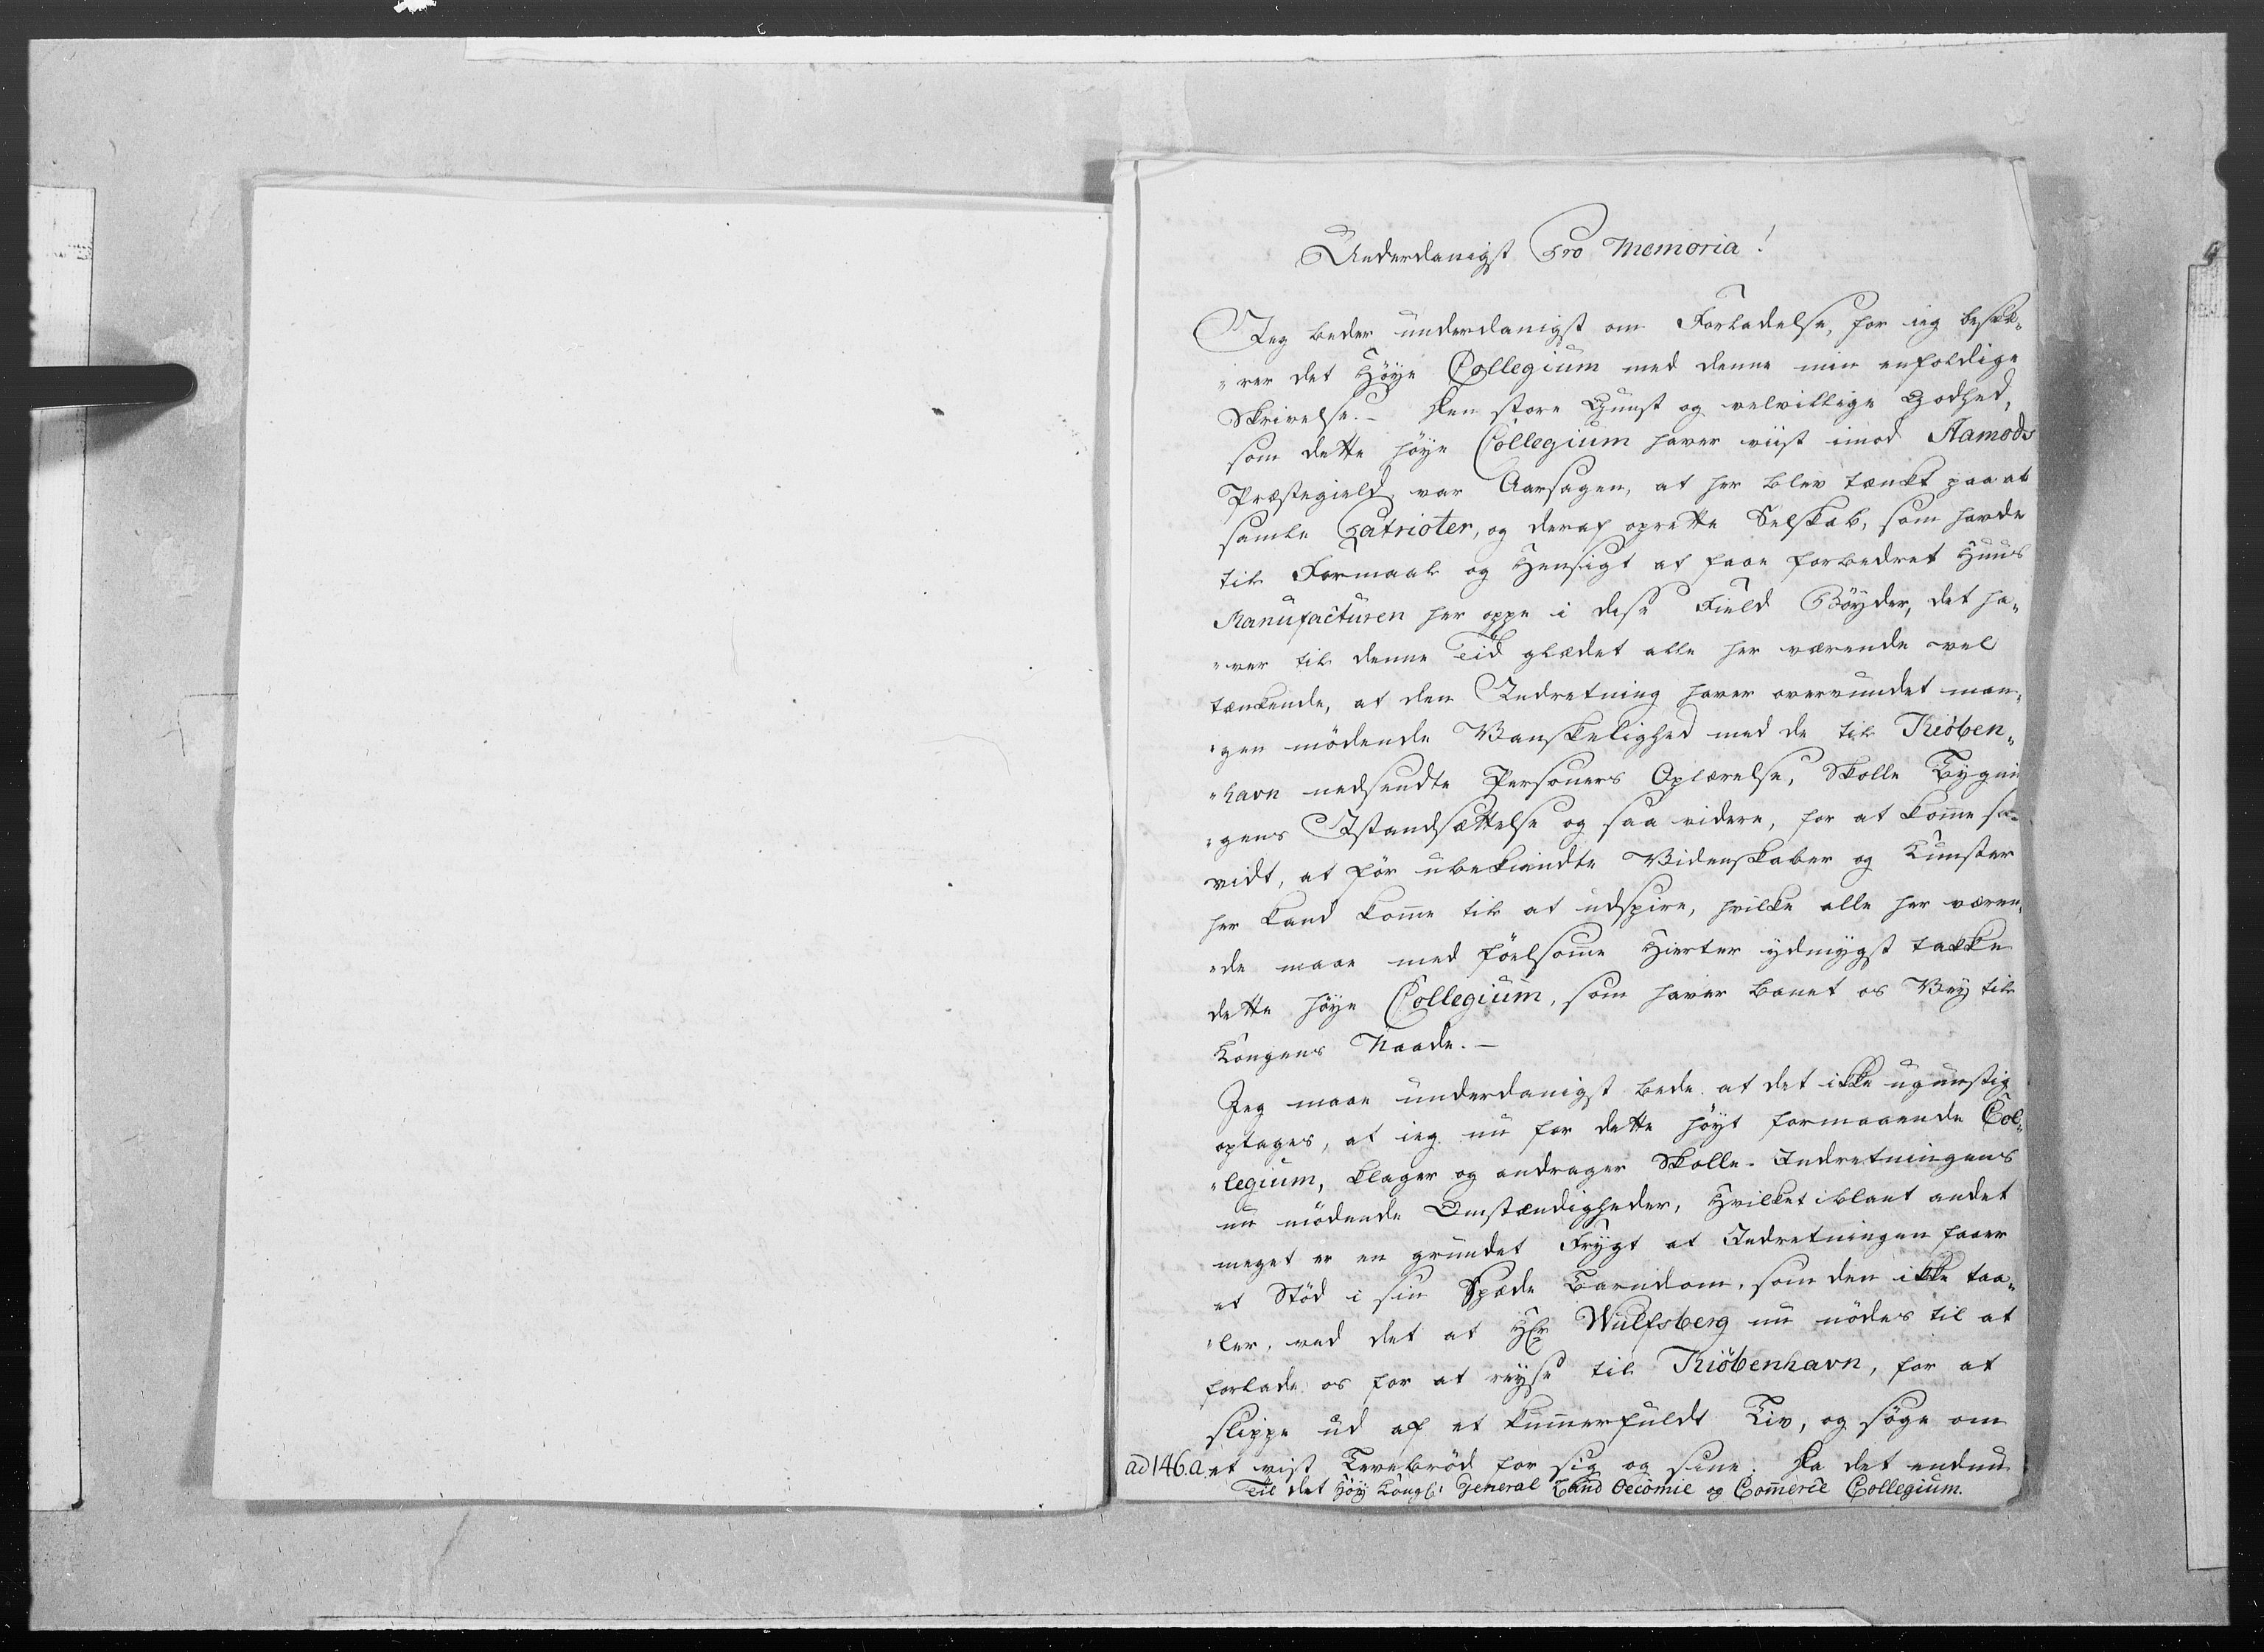 Underdanigst Pro Memoria!
Jeg beder underdanigst om Forladelse, for ieg besvæ„
„rer det Høye Collegium med denne min enfoldige
Skrivelse. – Den store Gunst og velvillige Godhed,
som dette høye Collegium haver viist imod Aamods
Præstegield, var Aarsagen, at her blev tænkt paa at
samle Patrioter, og deraf oprette Selskab, som havde
til Formaal og Hensigt at faae forbedret Huus
Manufacturen her oppe i dise Field Bøyder, det ha„
„ver til denne Tid glædet alle her værende vel
tænkende, at den Indretning haver overvundet man„
„gen mødende Vanskelighed med de til Kiøben„
„havn nedsendte Personers Oplærelse, Skolle Bygnin
„gens Istandsættelse og saa videre, for at komme saa
vidt, at før ubekiendte Videnskaber og Kunster
her kand komme til at udspire, hvilke alle her væren„
„de maae med føelsomme Hierter ydmygst takke
dette høye Collegium, som haver banet os Vey til
Kongens Naade. –
Jeg maae underdanigst bede at det ikke ugunstig
optages, at ieg nu for dette høyt formaaende Col„
„legium, klager og andrager Skolle-Indretningens
nu mødende Omstændigheder, Hvilket iblant andet
meget er en grundet Frygt at Indretningen faaer
et Stød i sin Spæde Barndom, som den ikke taa„
„ler, ved det at Hr Wulfsberg nu nødes til at
forlade os for at reyse til Kiøbenhavn, for at
slippe ud af et kummerfuldt Liv, og søge om
ad 146.a. et vist Levebrød for sig og sine. Da det endnu
Til det Høy Kongl: General Land Oecomie og Commerce Collegium.